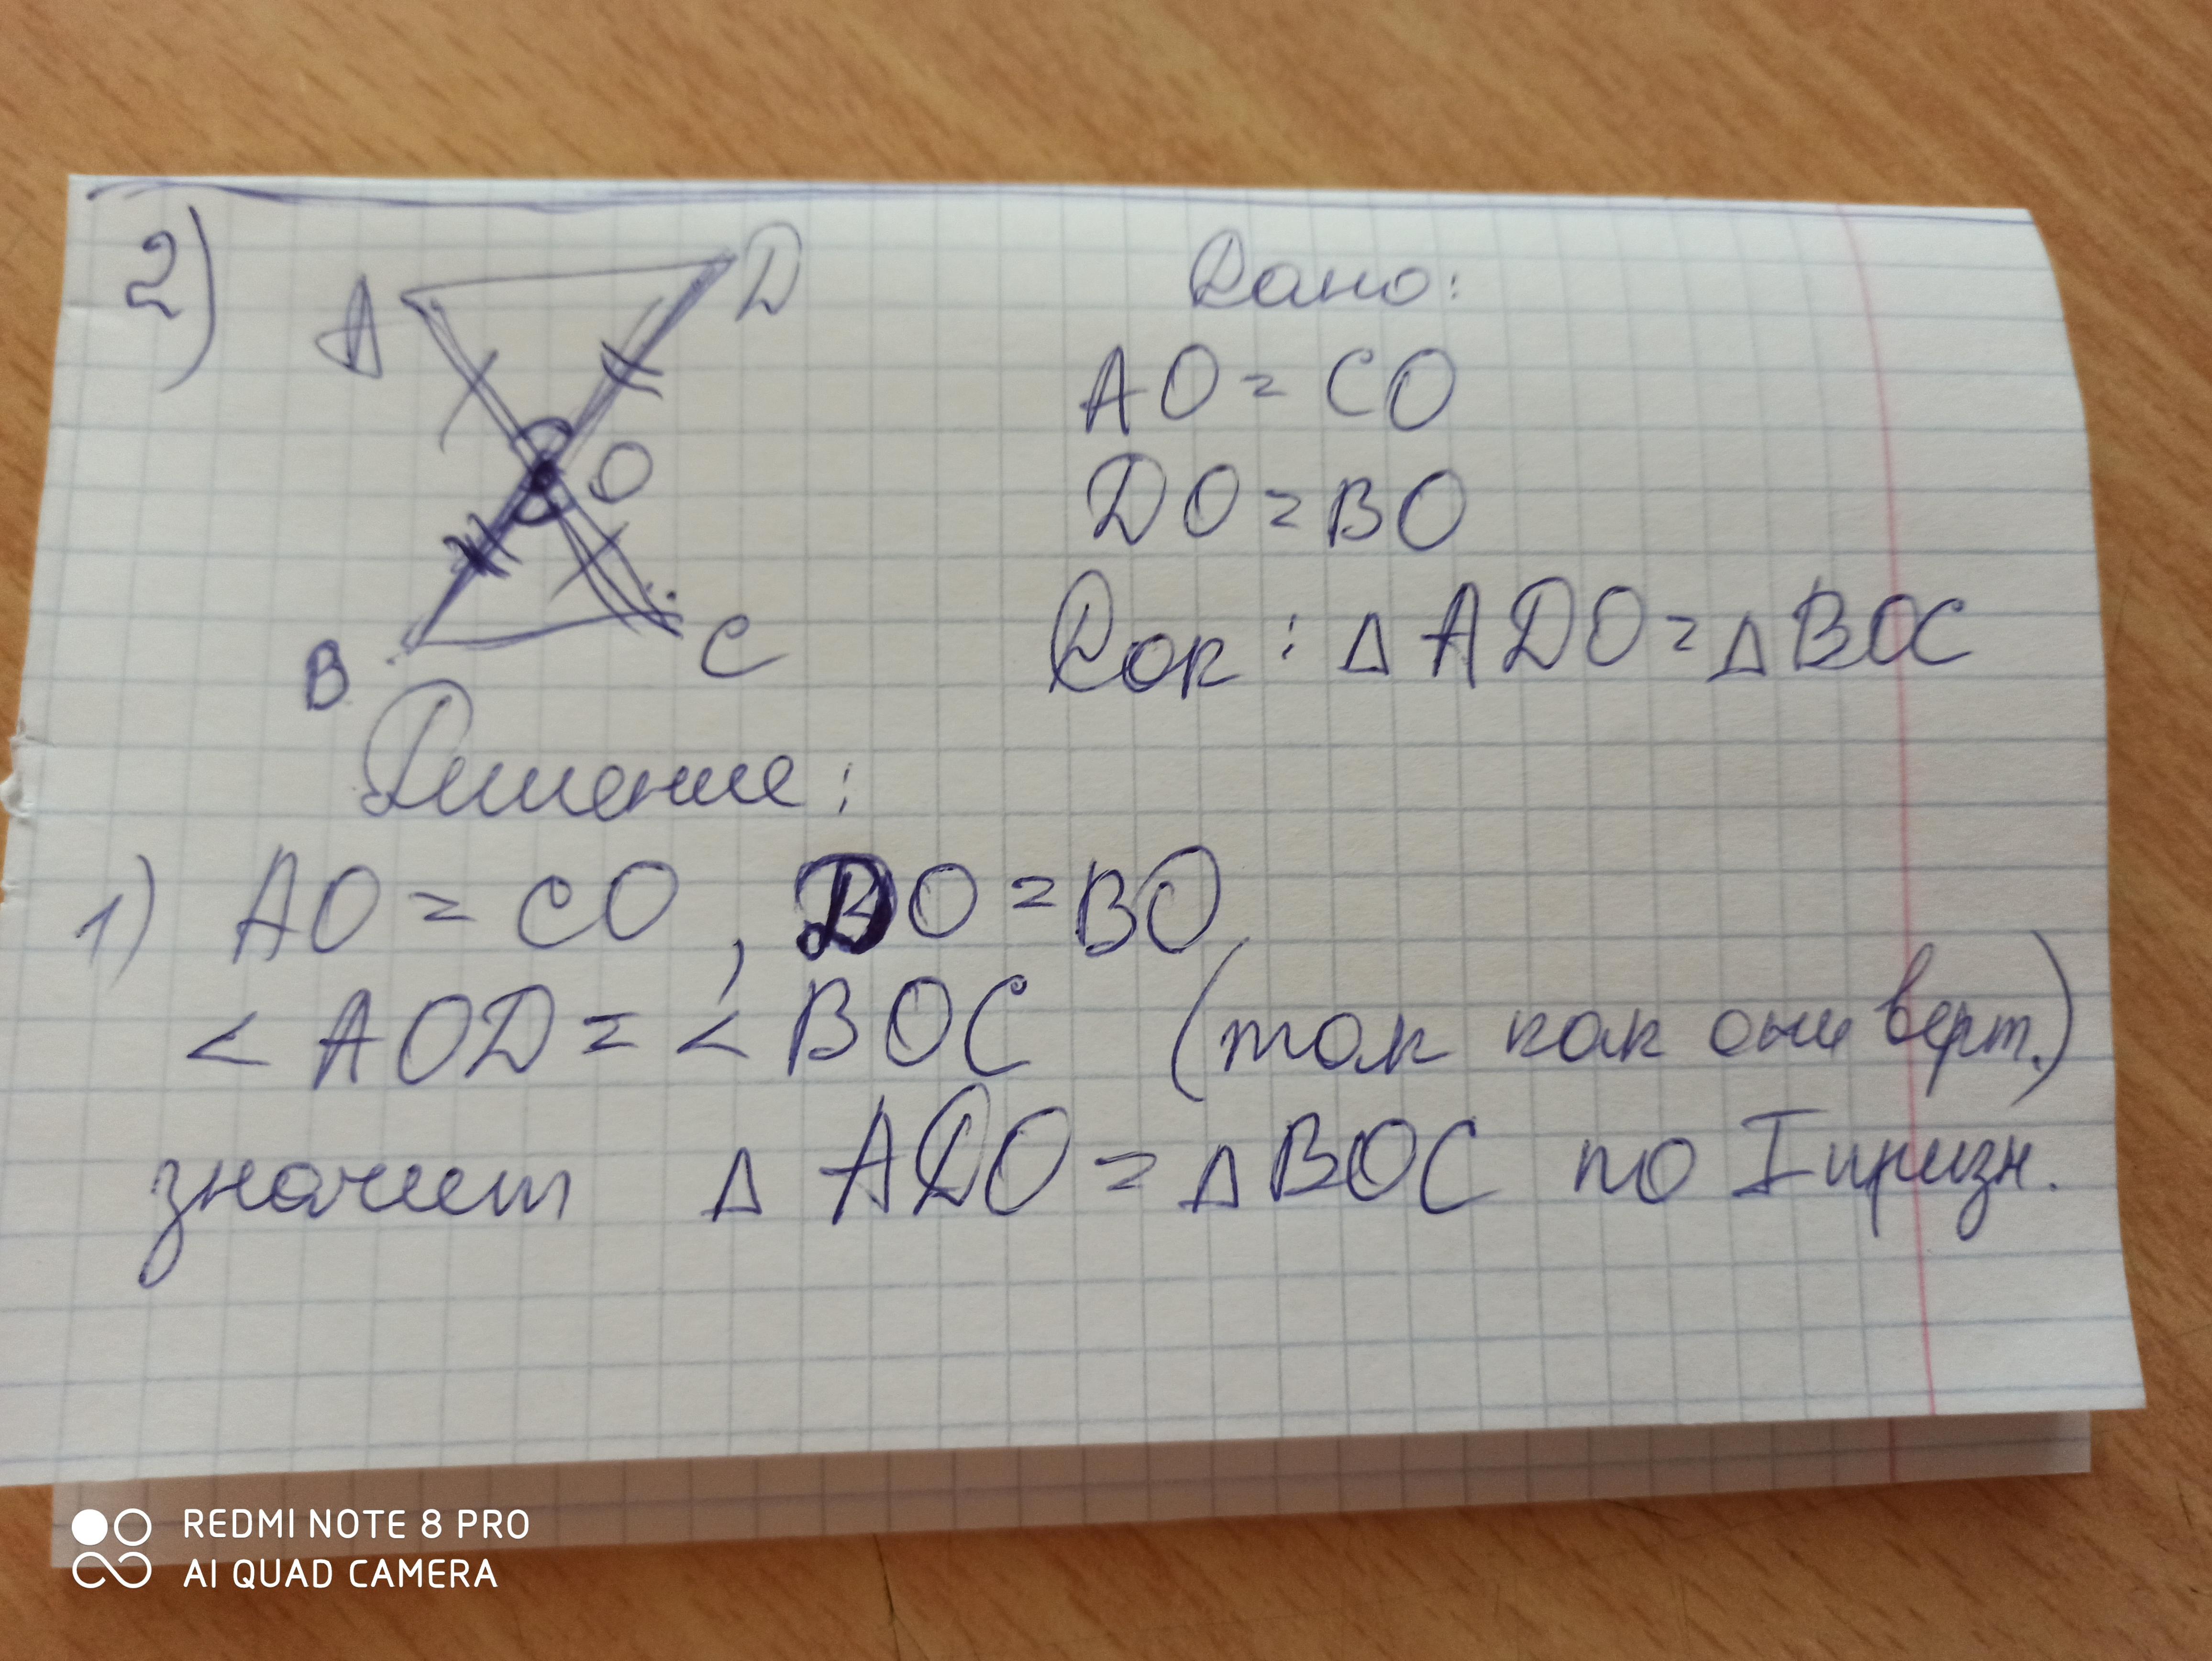 2)
A
D
O
B
C
Дано:
AO = CO
DO = BO
Док: △ ADO = △ BOC
Решение:
1) AO = CO, DO = BO
< AOD = < BOC (так как они верт.)
значит △ ADO = △ BOC по I призн.
REDMI NOTE 8 PRO
AI QUAD CAMERA